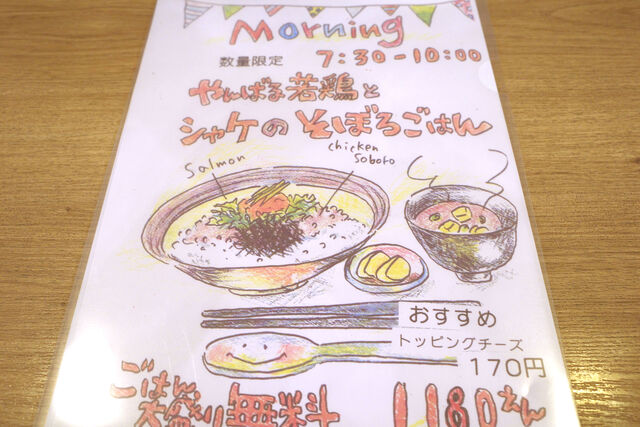 Morning
数量限定 7:30-10:00
やんばる若鶏と
シャケのそぼろごはん
Salmon
chicken
Soboro
おすすめ
トッピングチーズ
170円
ごはん
大盛り無料
1180えん